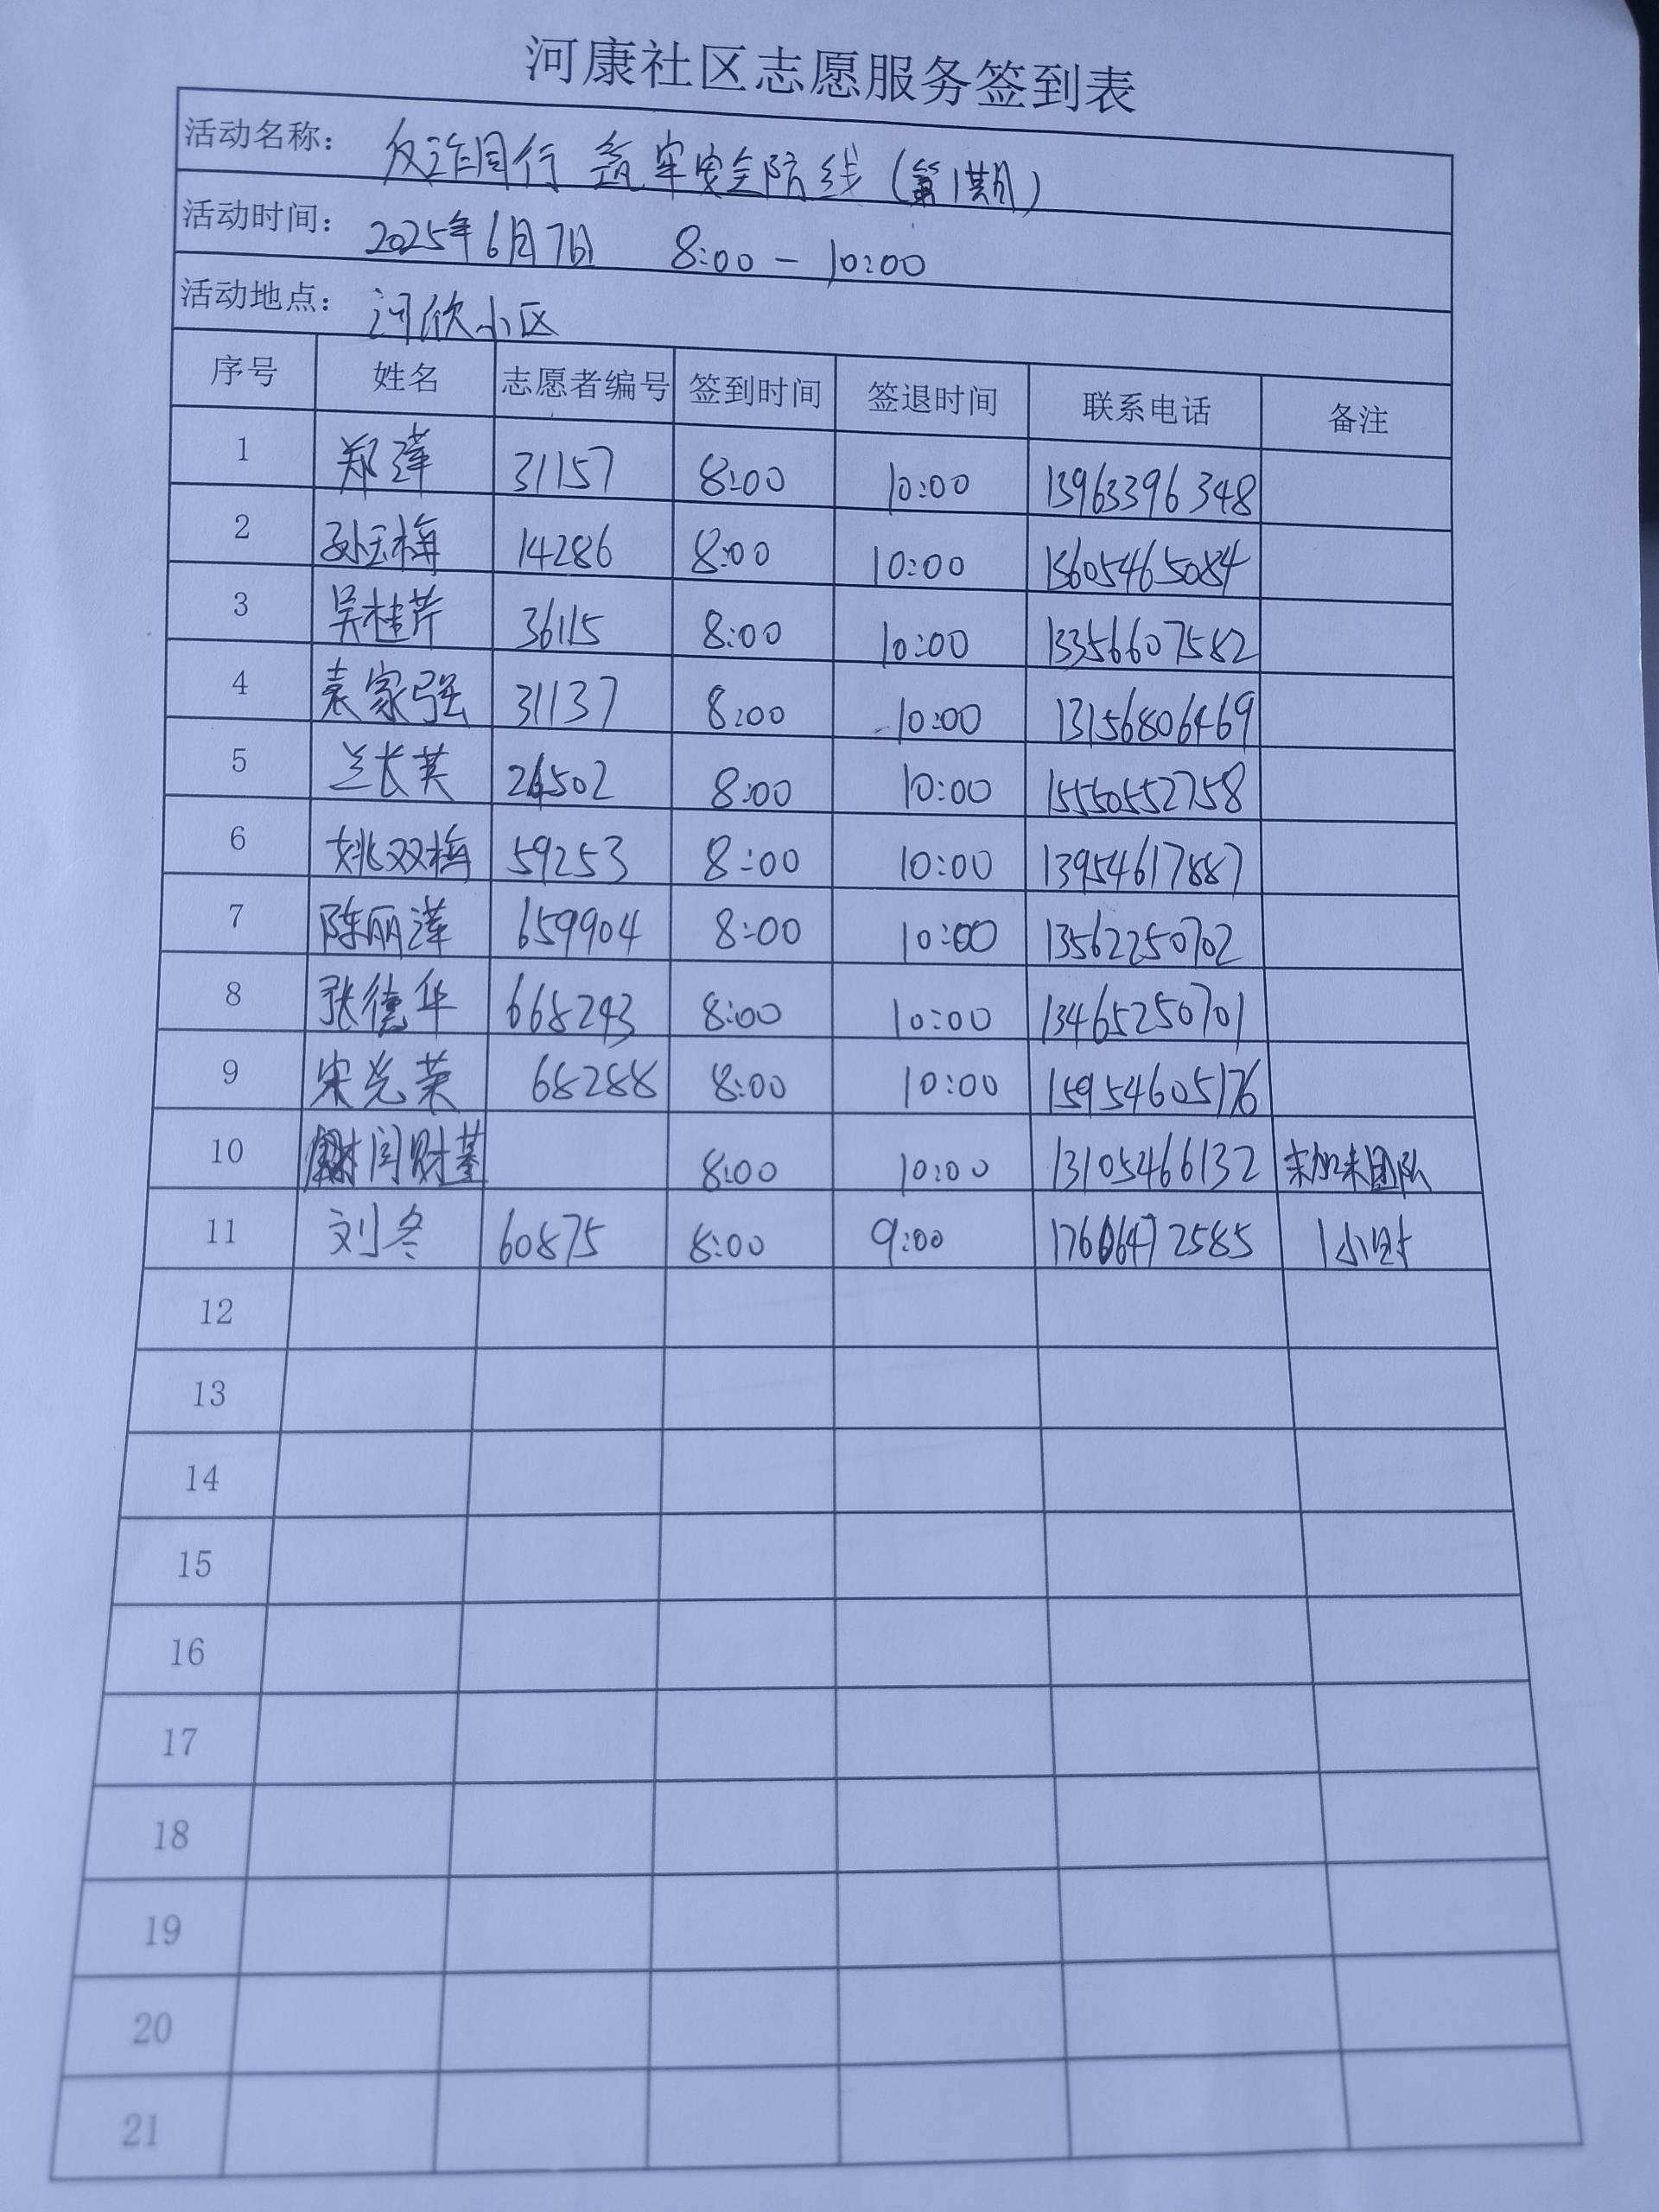 河康社区志愿服务签到表
活动名称： 反诈同行 筑牢安全防线（第1期）
活动时间： 2025年6月7日 8:00 - 10:00
活动地点： 河欣小区
序号 姓名 志愿者编号 签到时间 签退时间 联系电话 备注
1 郑莲 31157 8:00 10:00 13963396348
2 孙玉梅 14286 8:00 10:00 13605465084
3 吴桂芹 36115 8:00 10:00 13356607582
4 袁家强 31137 8:00 10:00 13156806469
5 兰长英 8:00 10:00 15550552758
6 姚双梅 59253 8:00 10:00 13954617887
7 陈丽莲 659904 8:00 10:00 13562250702
8 张德华 668243 8:00 10:00 13465250701
9 宋光英 68288 8:00 10:00 15954605176
10 闫财 8:00 10:00 13105466132 未加来团队
11 刘冬 60875 8:00 9:00 17606472585 1小时
12
13
14
15
16
17
18
19
20
21